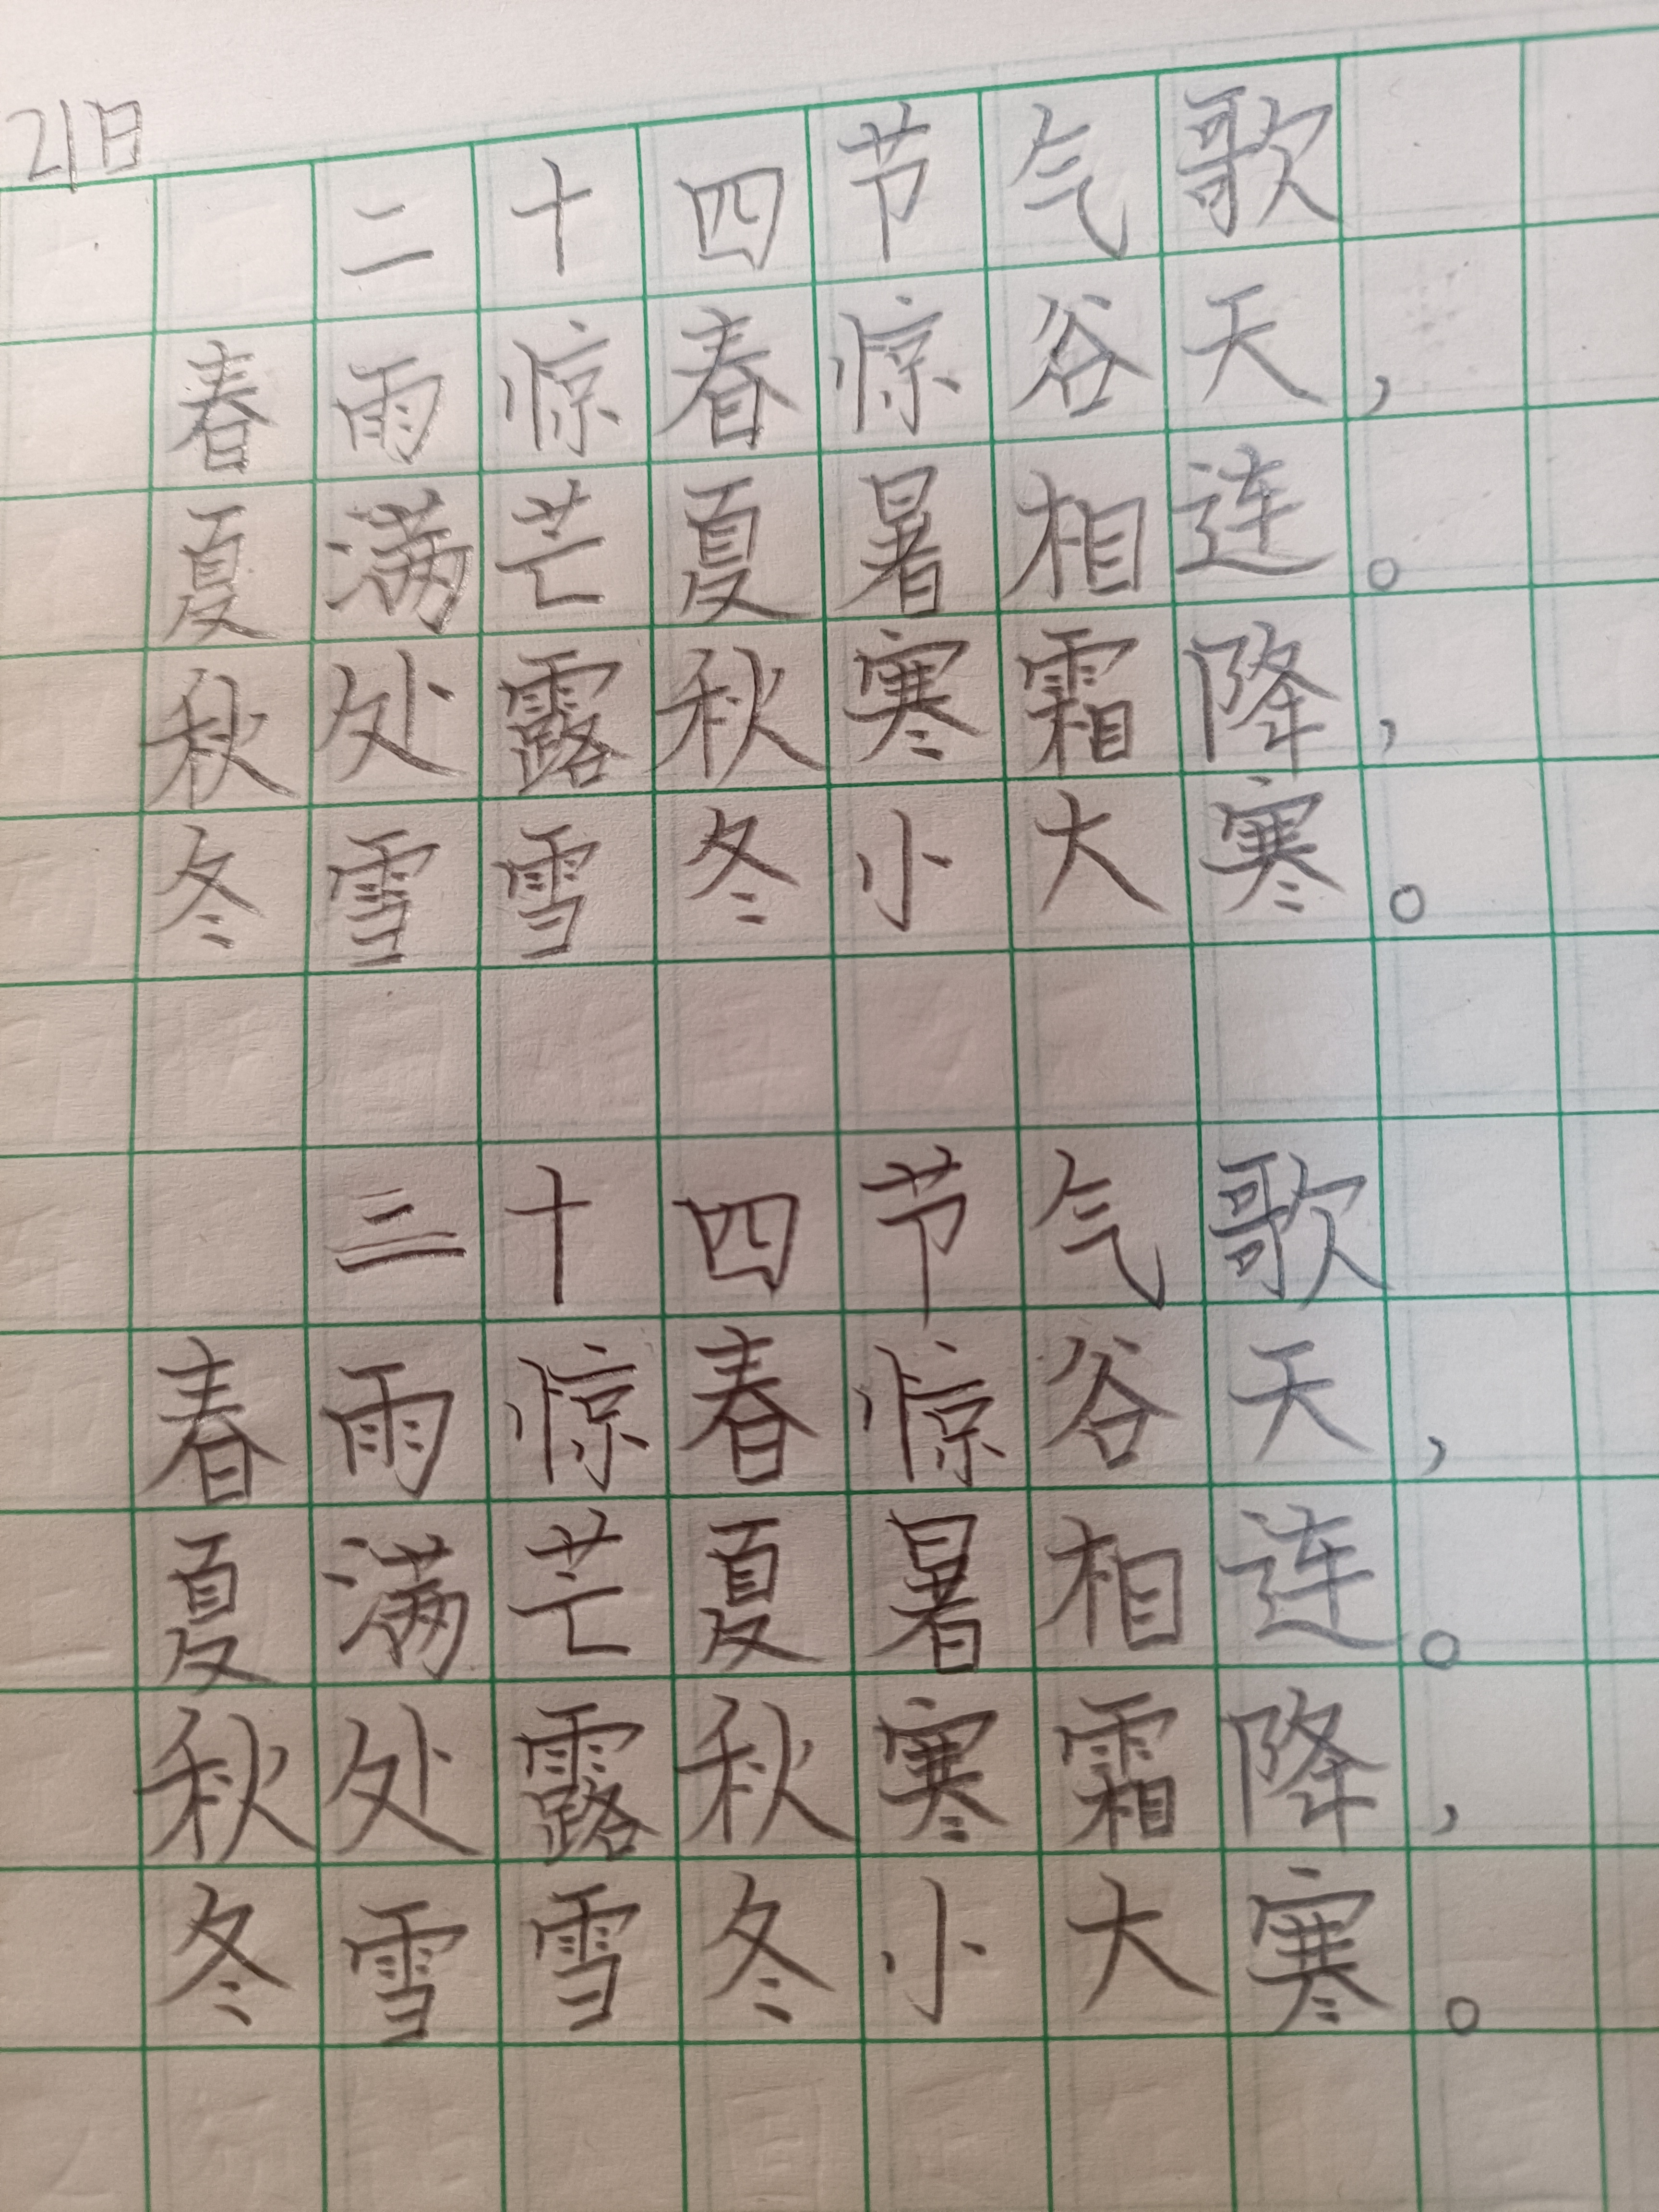 21日
二十四节气歌
春雨惊春惊谷天，
夏满芒夏暑相连。
秋处露秋寒霜降，
冬雪雪冬小大寒。
三十四节气歌
春雨惊春惊谷天，
夏满芒夏暑相连。
秋处露秋寒霜降，
冬雪雪冬小大寒。